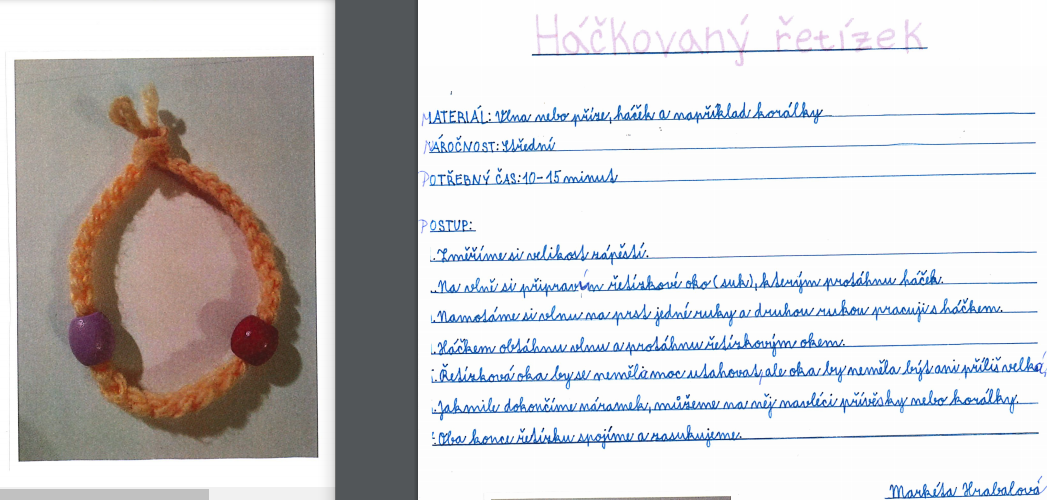 Háčkovaný řetízek
MATERIÁL: Vlna nebo příze, háček a například korálky
NÁROČNOST: Střední
POTŘEBNÝ ČAS: 10-15 minut
POSTUP:
. Změříme si velikost zápěstí.
. Na vlně si připravím řetízkové oko (suk), kterým protáhnu háček.
. Namotáme si vlnu na prst jedné ruky a druhou rukou pracuji s háčkem.
. Háčkem obtáhnu vlnu a protáhnu řetízkovým okem.
. Řetízková oka by se neměla moc utahovat, ale oka by neměla být ani příliš velká,
. Jakmile dokončíme náramek, můžeme na něj navléci přívěsky nebo korálky.
. Oba konce řetízku spojíme a zasukujeme.
Markéta Hrabalová